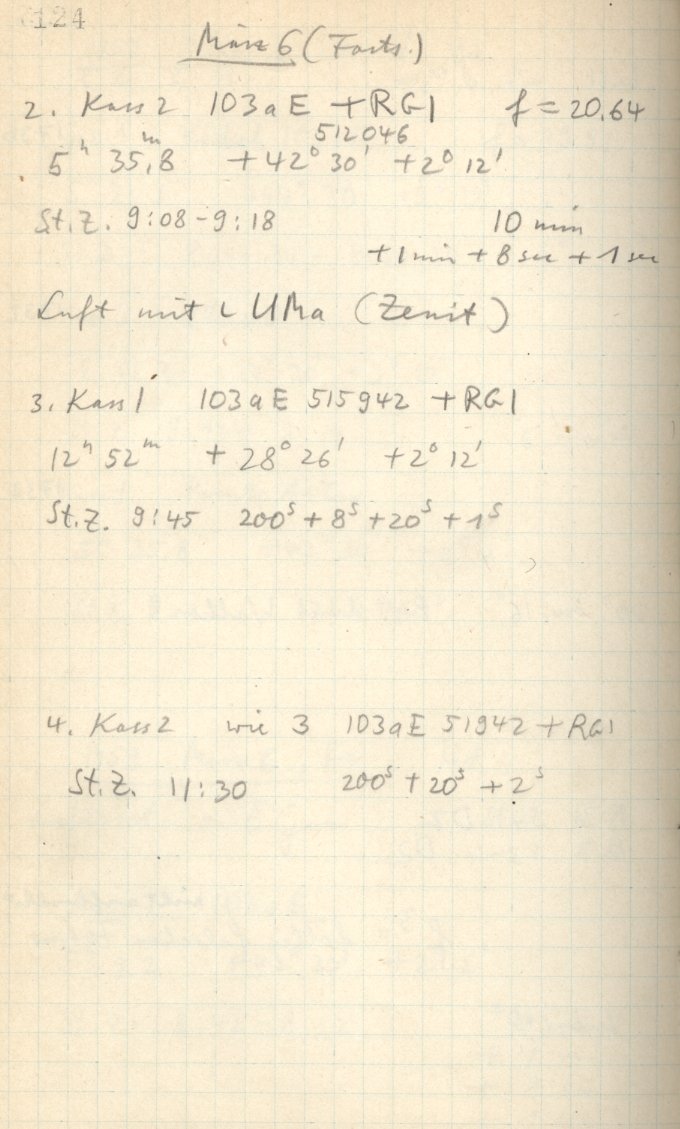 124
März 6 (Forts.)
2. Kass 2 103aE + RG1 f = 20.64
512046
5h 35m,8 +42° 30' +2° 12'
St.Z. 9:08-9:18 10 min
+1min + 8sec + 1sec
Luft mit ι UMa (Zenit)
3. Kass 1 103aE 515942 + RG1
12h 52m + 28° 26' +2° 12'
St.Z. 9:45 200s + 8s + 20s + 1s
4. Kass 2 wie 3 103aE 51942 + RG1
St.Z. 11:30 200s + 20s + 2s